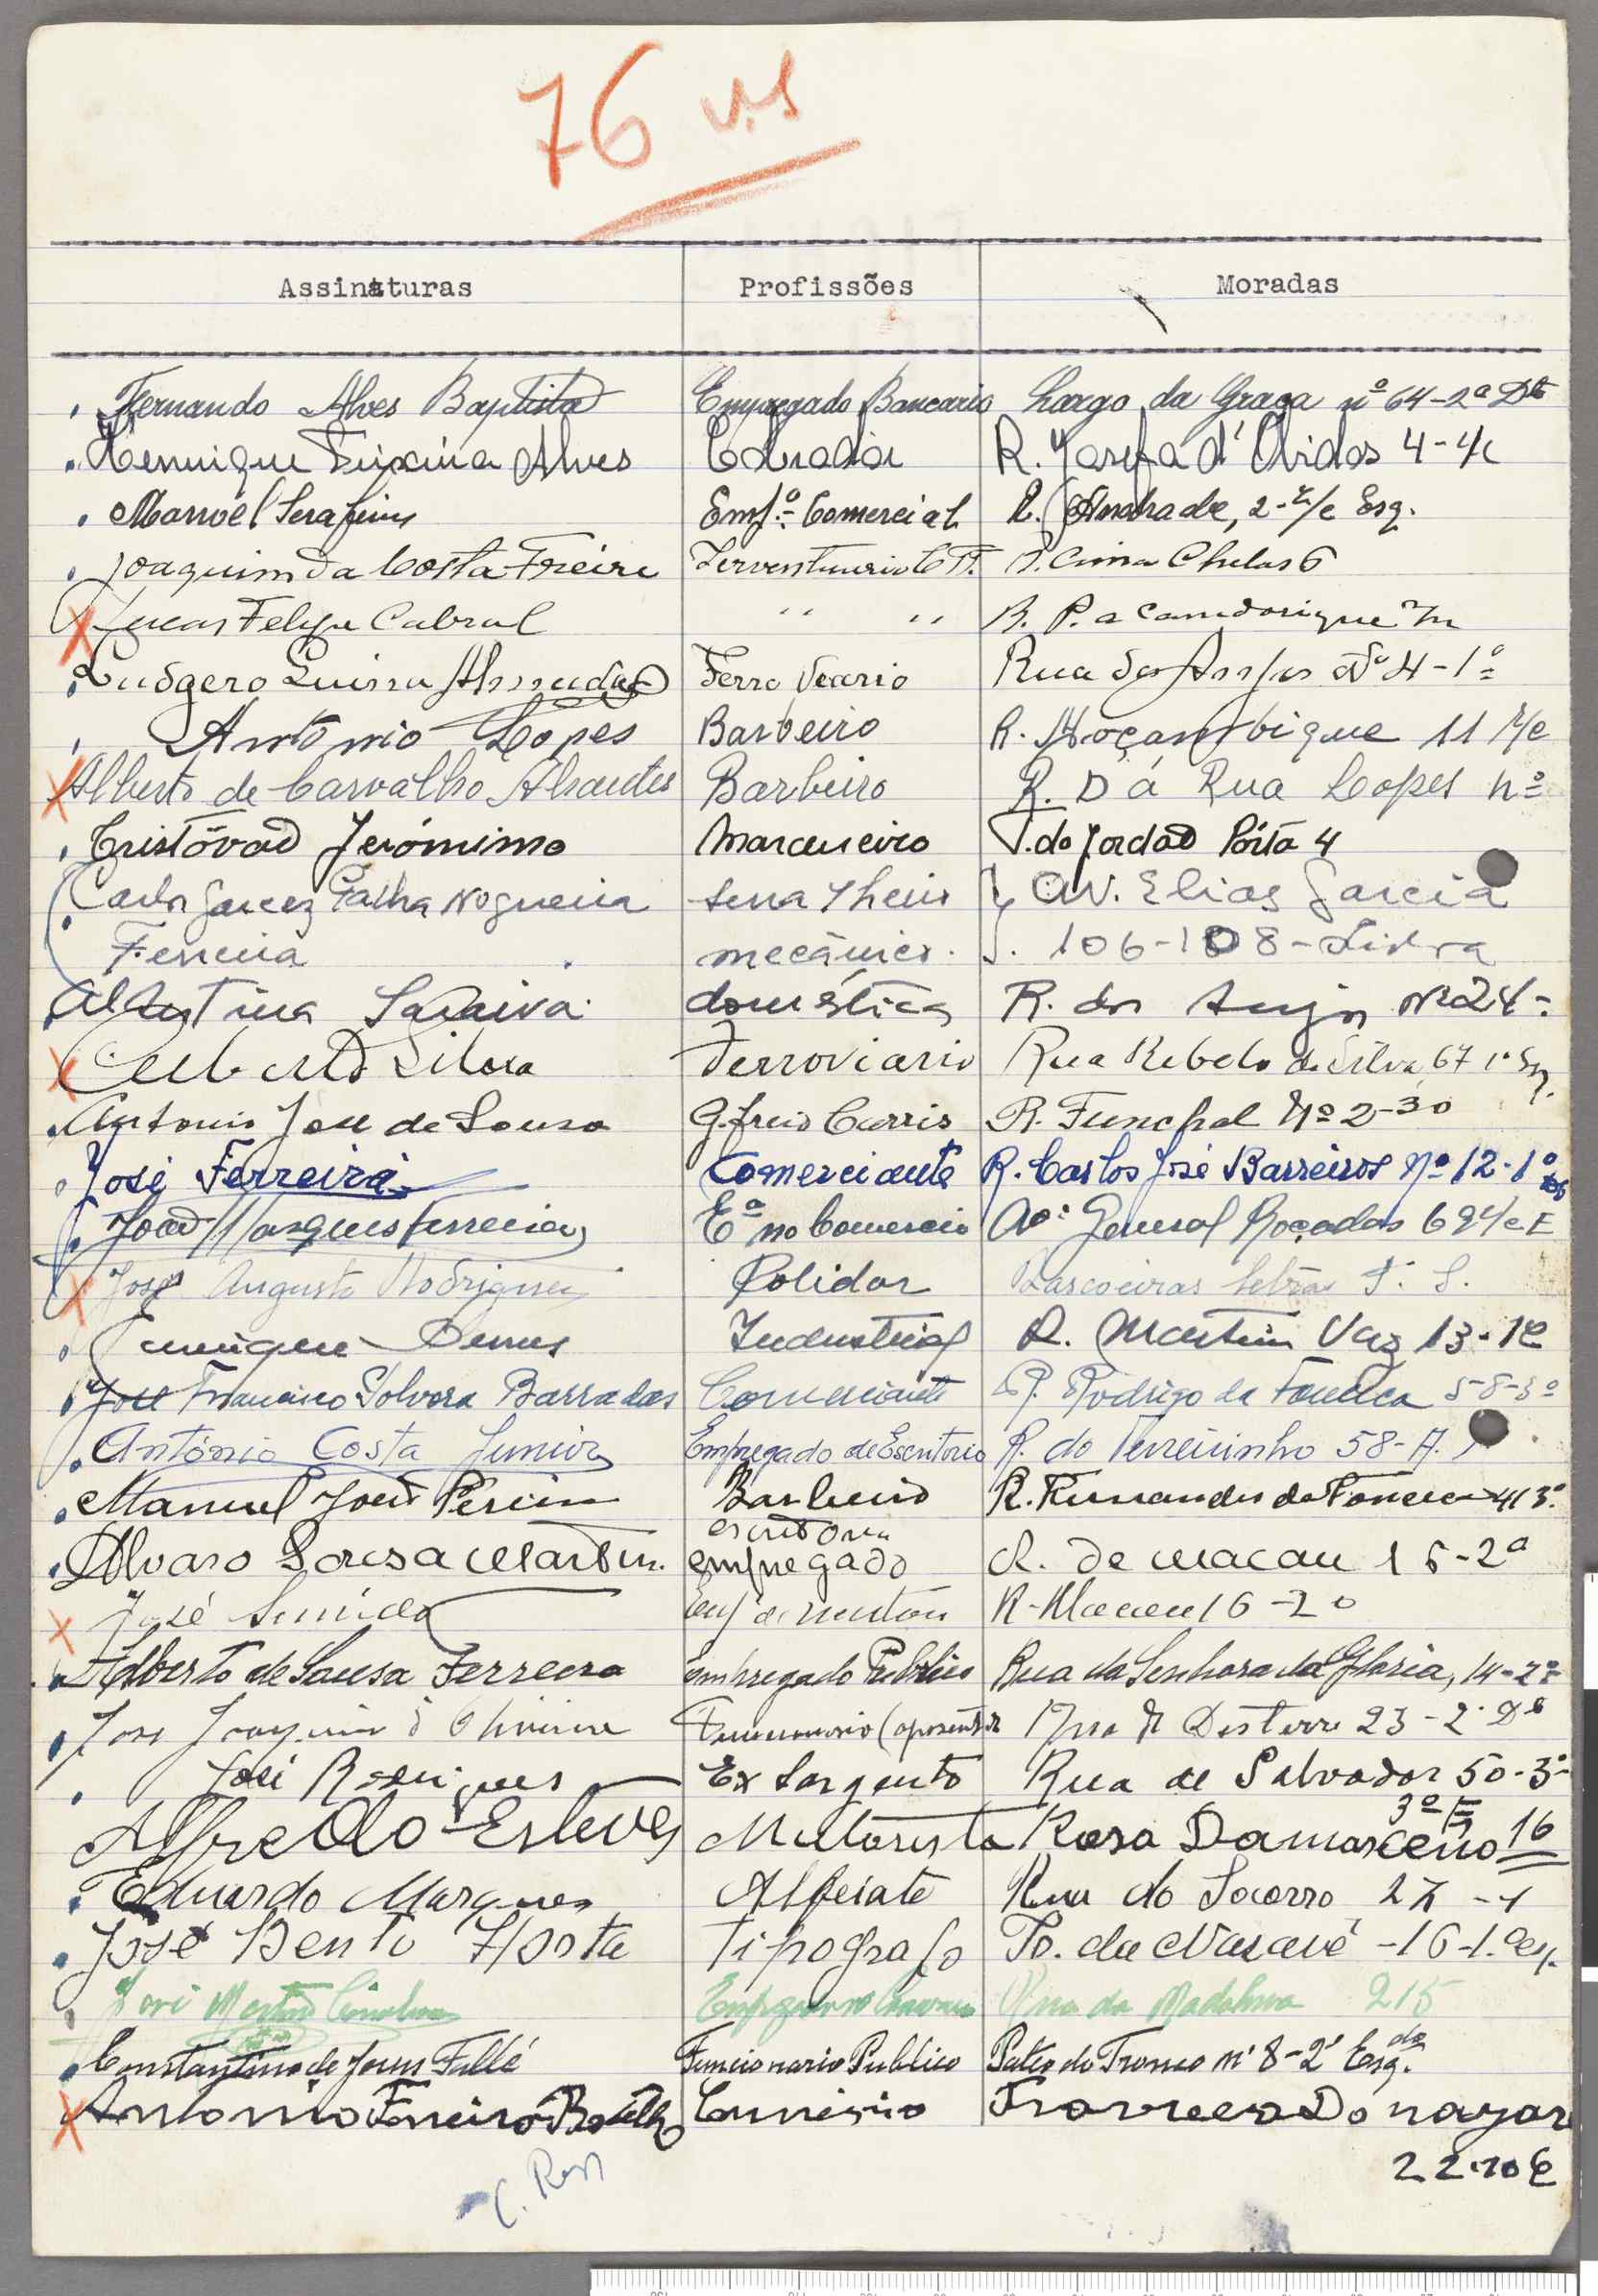 76 V.S
Assinaturas Profissões Moradas
Fernando Alves Baptista Empregado Bancario Largo da Graça nº 64-2º Dto
Henrique Teixeira Alves Cobrador R. Josefa d'Óbidos 4-r/c
Manoel Serafim Empº Comercial R. Andrade, 2-r/c Esq.
Joaquim da Costa Freire Serventuario C 6
Lucas Felipe Cabral " "
Ludgero Almeida Ferro Veario Rua dos Anjos Nº 4-1º
António Lopes Barbeiro R. Moçambique 11 r/c
Alberto de Carvalho Abrantes Barbeiro R. D á Rua Lopes nº
Cristóvão Jerónimo Marceneiro V. do Jordão Pórta 4
Carlos Garcez Palha Nogueira Av. Elias Garcia
Ferreira mecânico. 106-108-Lisboa
Albertina Saraiva domestica R. dos Anjos Nº 24-
Ferroviario Rua Rebelo da Silva, 67 1º Esq.
Antonio José de Sousa G. freio Carris R. Funchal Nº 2-3º
José Ferreira Comerciante R. Carlos José Barreiros Nº 12-1º
João Marques Ferreira Eº no Comercio Av. General Roçadas 69 r/c E
José Augusto Rodrigues Polidor
Henrique Industrial R. Martim Vaz 13-1º
José Francisco Solvora Barradas Comerciante R. Rodrigo da Fonseca 5-8-3º
António Costa Junior Empregado de Escritorio R. do Terreirinho 58-A.
Manuel José Barbeiro R. Fernandes da Fonseca 4 3º
escritorio
Alvaro Sousa Martins empregado R. de Macau 16-2º
José R. Macau 16-2º
Adberto de Sousa Ferreira empregado Publico Rua da Senhora da Gloria, 14-2º
José Joaquim d'Oliveira Funcionario (aposentado Desterro 23-2º Dº
José Rodrigues Ex Sargento Rua de Salvador 50-3º
3º E
Alfredo Esteves Motorista Rosa Damasceno 16
Eduardo Marques Alfeiate Rua do Socorro 27-1
José Bento Tipografo Tr. da Nazaré -16-1º Esq.
José Martins Empregado no Comercio Rua da Madalena 215
Constantino de Jesus Fallé Funcionario Publico Pateo do Tronco nº 8-2º Esq.do
Antonio Botelho Travessa Do nazare
22-1º E